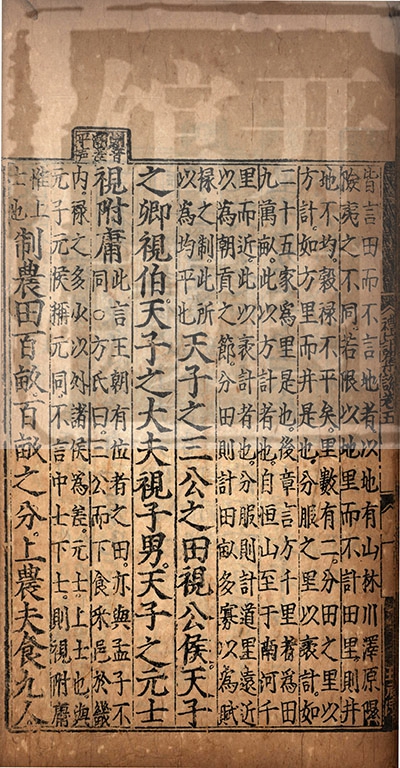 皆言田而不言地者以地有山林川澤原隰
險夷之不同若限以地里而不計田里則井
地不均穀祿不平矣里數有二分田之里以
方計如方里而井是也分服之里以袤計如
二十五家為里是也後章言方千里者為田
九萬畝此以方計者也自恒山至于南河千
里而近此以袤計者也分服則計道里遠近
以為朝貢之節分田則計田畝多寡以為賦
祿之制此所
以為均平也
天子之三公之田視公侯。天子
之卿視伯。天子之大夫視子男。天子之元士
視附庸
此言王朝有位者之田亦與孟子不
同○方氏曰三公而下食采邑於畿
內祿之多少以外諸侯為差元士上士也與
元子元侯稱元同不言中士下士則視附庸
惟上
士也
制農田百畝。百畝之分。上農夫食九人
禮記集說卷五